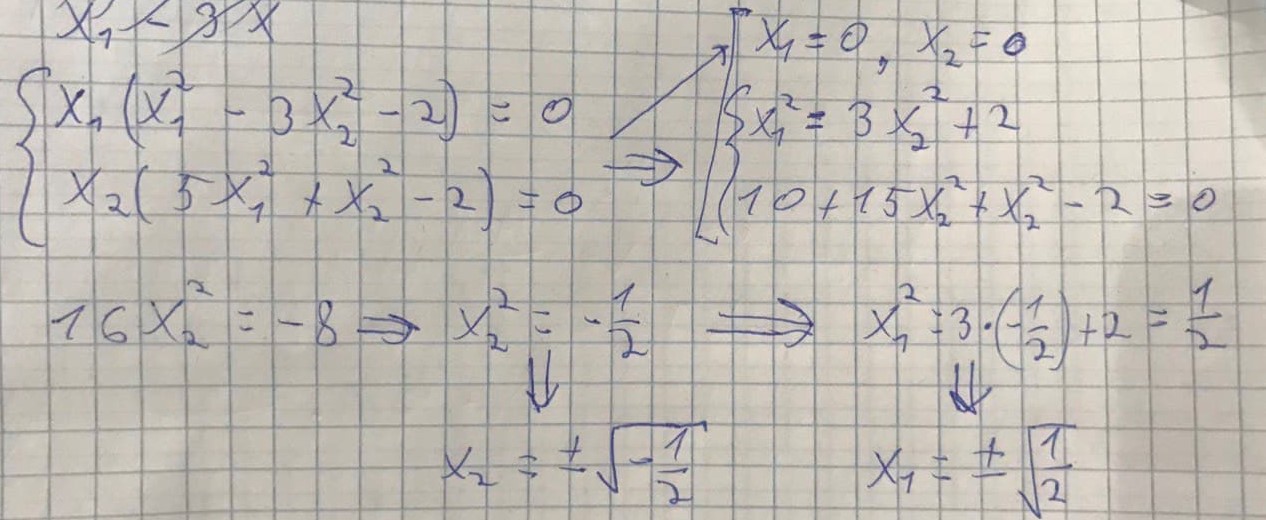 x₁ - 3x
x₁(x₁² - 3x₂² - 2) = 0
x₂(5x₁² + x₂² - 2) = 0
⇒
x₁ = 0, x₂ = 0
x₁² = 3x₂² + 2
10 + 15x₂² + x₂² - 2 = 0
16x₂² = -8 ⇒ x₂² = -1/2 ⇒ x₁² = 3·(-1/2) + 2 = 1/2
⇓ ⇓
x₂ = ±√(-1/2) x₁ = ±√(1/2)